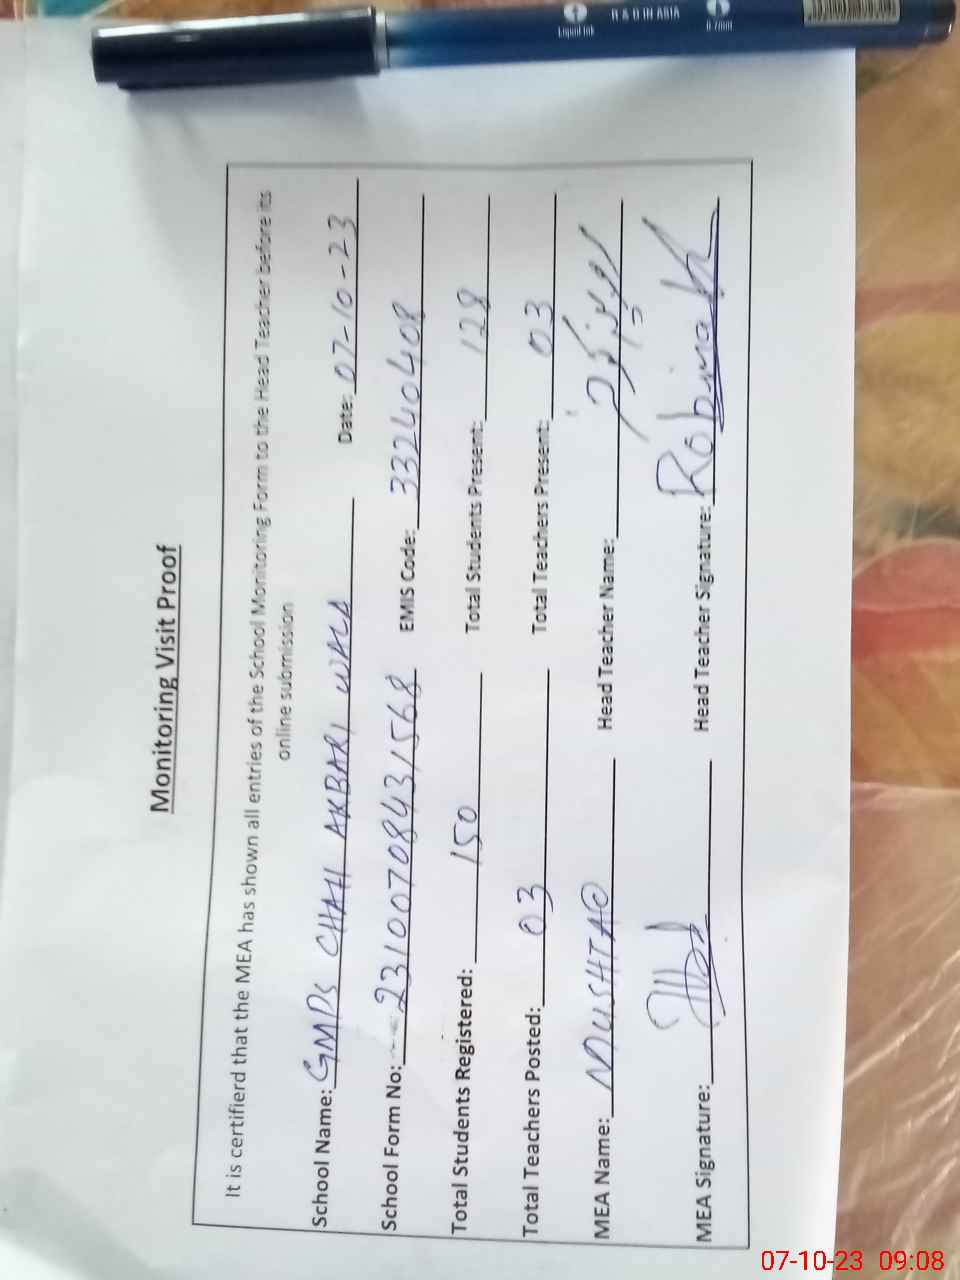 Liquid Ink
0.7mm
Monitoring Visit Proof
It is certifierd that the MEA has shown all entries of the School Monitoring Form to the Head Teacher before its
online submission
School Name: GMPS CHAH AKBARI WALA Date: 07-10-23
School Form No: 23100708431568 EMIS Code: 33240408
Total Students Registered: 150 Total Students Present: 128
Total Teachers Posted: 03 Total Teachers Present: 03
MEA Name: MUSHTAQ Head Teacher Name:
MEA Signature: Head Teacher Signature: Robina
07-10-23 09:08